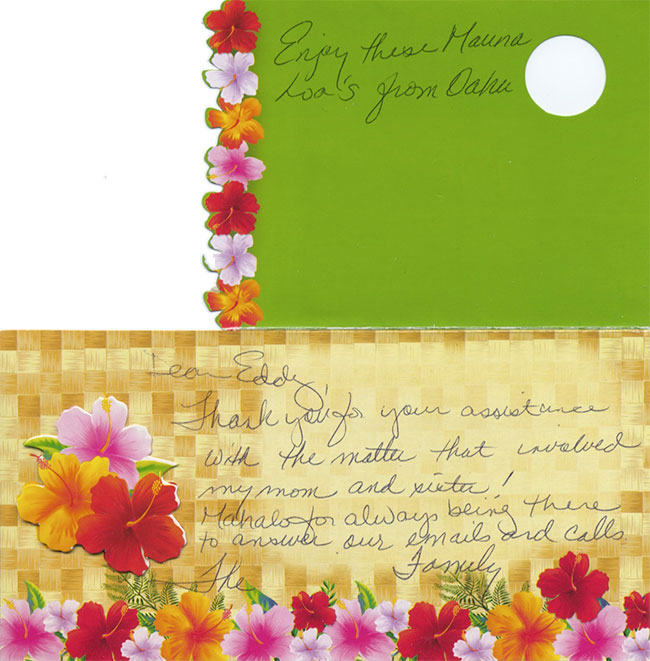 Enjoy these Mauna
Loa's from Oahu
Dear Eddy,
Thank you for your assistance
with the matter that involved
my mom and sister!
Mahalo for always being there
to answer our emails and calls
The Family